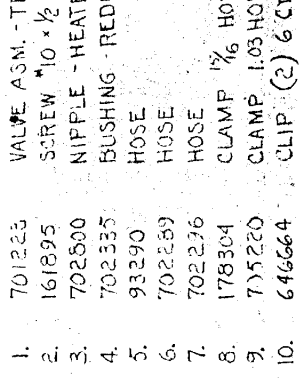 1. 701223 VALVE ASM. - T
2. 161895 SCREW #10 x 1/2
3. 702800 NIPPLE - HEAT
4. 702335 BUSHING - RED
5. 93290 HOSE
6. 702289 HOSE
7. 702296 HOSE
8. 178304 CLAMP 15/16 HO
9. 735220 CLAMP 1.03 HO
10. 646664 CLIP (2) 6 C